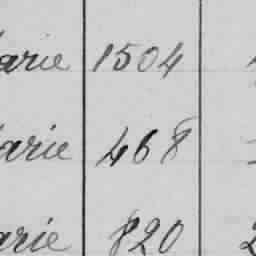 arie 1504
arie 468
arie 820 2